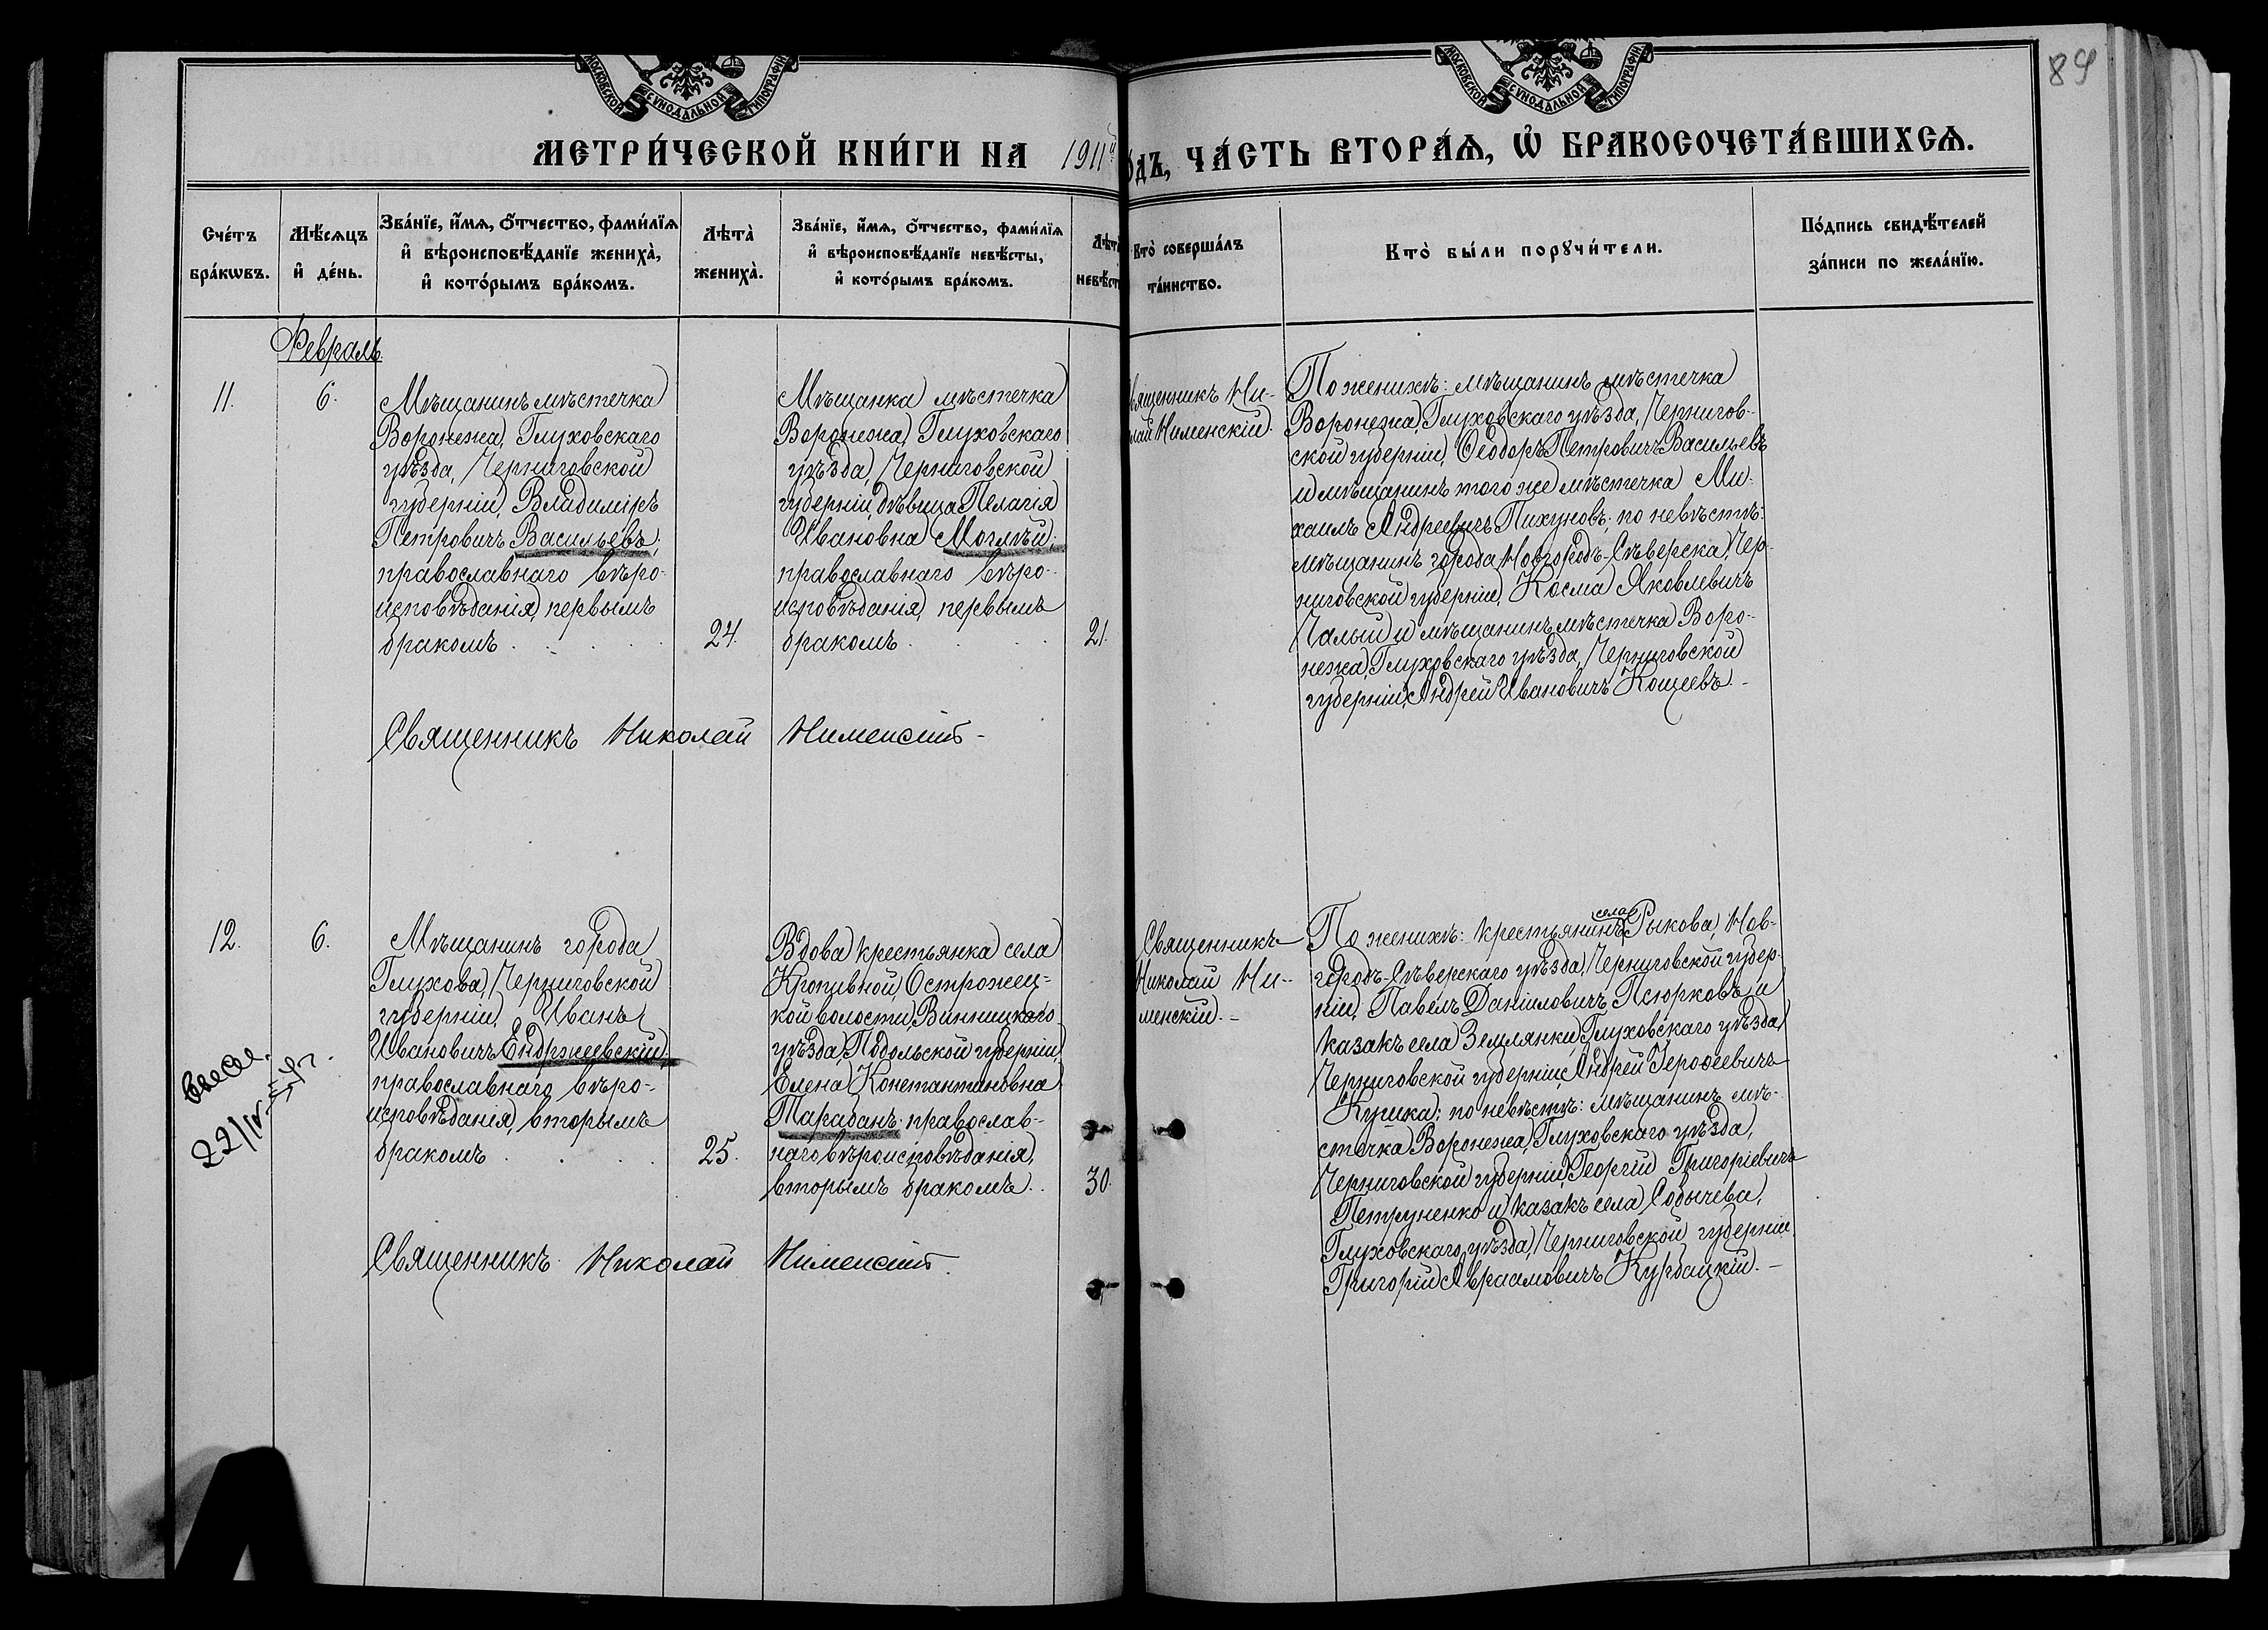 МОСКОВСКОЙ СѴНОДАЛЬНОЙ ТИПОГРАФІИ
МОСКОВСКОЙ СѴНОДАЛЬНОЙ ТИПОГРАФІИ
89
МЕТРИ́ЧЕСКОЙ КНИ́ГИ НА 1911й
о́дъ, ЧА́СТЬ ВТОРА́Ѧ, Ѽ БРАКОСОЧЕТА́ВШИХСѦ.
Сче́тъ
бра́кѡвъ.
Мѣ́сѧцъ
и҆ де́нь.
Зва́нїе, и҆́мѧ, ѻ҆́тчество, фами́лїѧ
и҆ вѣроисповѣ́данїе жениха̀,
и҆ кото́рымъ бра́комъ.
Лѣта̀
жениха̀.
Зва́нїе, и҆́мѧ, ѻ҆́тчество, фами́лїѧ
и҆ вѣроисповѣ́данїе невѣ́сты,
и҆ кото́рымъ бра́комъ.
Лѣта
невѣ́ст
Кто̀ соверша́лъ
та́инство.
Кто̀ бы́ли порꙋчи́тели.
По́дпись свидѣ́телей
за́писи по жела́нїю.
Февраль
11.
6.
Мѣщанинъ мѣстечка
Воронежа, Глуховскаго
уѣзда, Черниговской
губерніи, Владиміръ
Петровичъ Васильевъ;
православнаго вѣро-
исповѣданія, первымъ
бракомъ
24.
Мѣщанка мѣстечка
Воронежа, Глуховскаго
уѣзда, Черниговской
губерніи, дѣвица Пелагія
Ивановна Моглѣй;
православнаго вѣро-
исповѣданія, первымъ
бракомъ
21.
вященникъ Ни-
лай Нименскій.
По женихѣ: мѣщанинъ мѣстечка
Воронежа, Глуховскаго уѣзда, Чернигов-
ской губерніи, Ѳеодоръ Петровичъ Васильевъ
и мѣщанинъ того же мѣстечка Ми-
хаилъ Андреевичъ Пихуновъ; по невѣстѣ:
мѣщанинъ города Новгородъ-Сѣверска, Чер-
ниговской губерніи, Косма Яковлевичъ
Чалый и мѣщанинъ мѣстечка Воро-
нежа, Глуховскаго уѣзда, Черниговской
губерніи, Андрей Ивановичъ Кощеевъ.-
Священникъ Николай Нименскій -
12.
6.
22/IV
Мѣщанинъ города
Глухова, Черниговской
губерніи, Иванъ
Ивановичъ Ендржеевскій,
православнаго вѣро-
исповѣданія, вторымъ
бракомъ
25.
Вдова крестьянка села
Кропивной, Острожец-
кой волости, Винницкаго
уѣзда, Подольской губерніи,
Елена Константиновна
Тарабанъ; православ-
наго вѣроисповѣданія,
вторымъ бракомъ.
30.
Священникъ
Николай Ни-
менскій.-
По женихѣ: крестьянинъ села Рыкова, Нов-
городъ-Сѣверскаго уѣзда, Черниговской губер-
ніи, Павелъ Даніиловичъ Псюрковъ и
казакъ села Землянки, Глуховскаго уѣзда,
Черниговской губерніи, Андрей Іероѳеевичъ
Кушка; по невѣстѣ: мѣщанинъ мѣ-
стечка Воронежа, Глуховскаго уѣзда,
Черниговской губерніи, Георгій Григоріевичъ
Петруненко и казакъ села Собычева,
Глуховскаго уѣзда, Черниговской губерніи
Григорій Авраамовичъ Курбацкій.-
Священникъ Николай Нименскій.